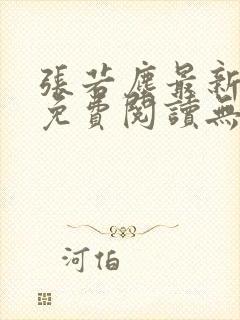 張若塵最新
免費閱讀無
河伯